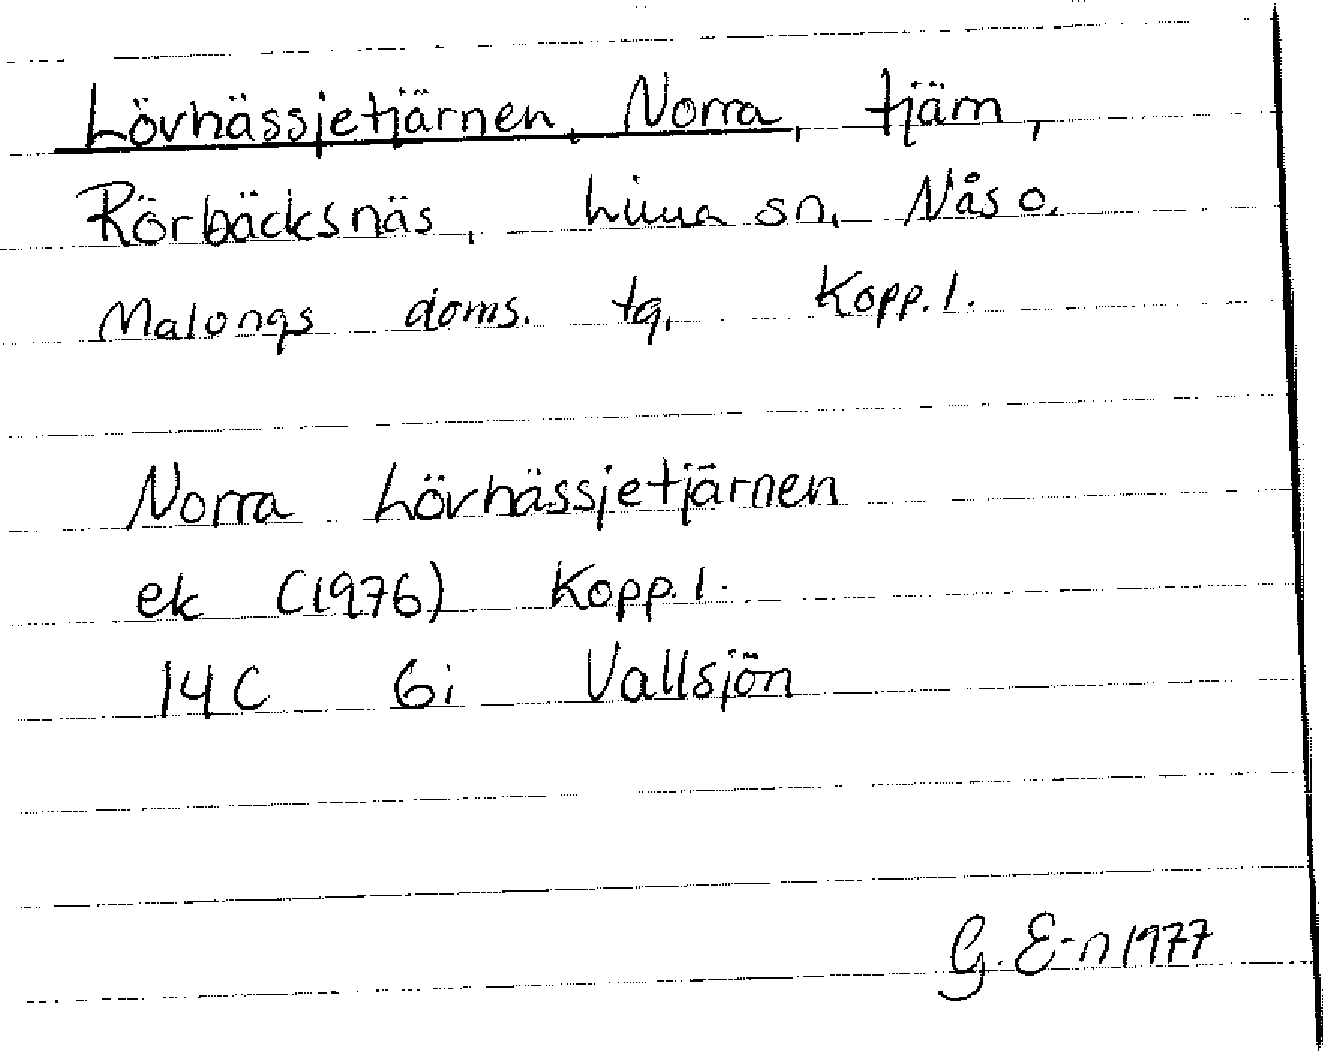 Lövhässjetjärnen, Norra, tjärn,
Rörbäcksnäs, Lima sn, Nås o.
Malungs doms. tg. Kopp. l.
Norra Lövhässjetjärnen
ek (1976) Kopp. l.
14C 6i Vallsjön
G. E-n 1977